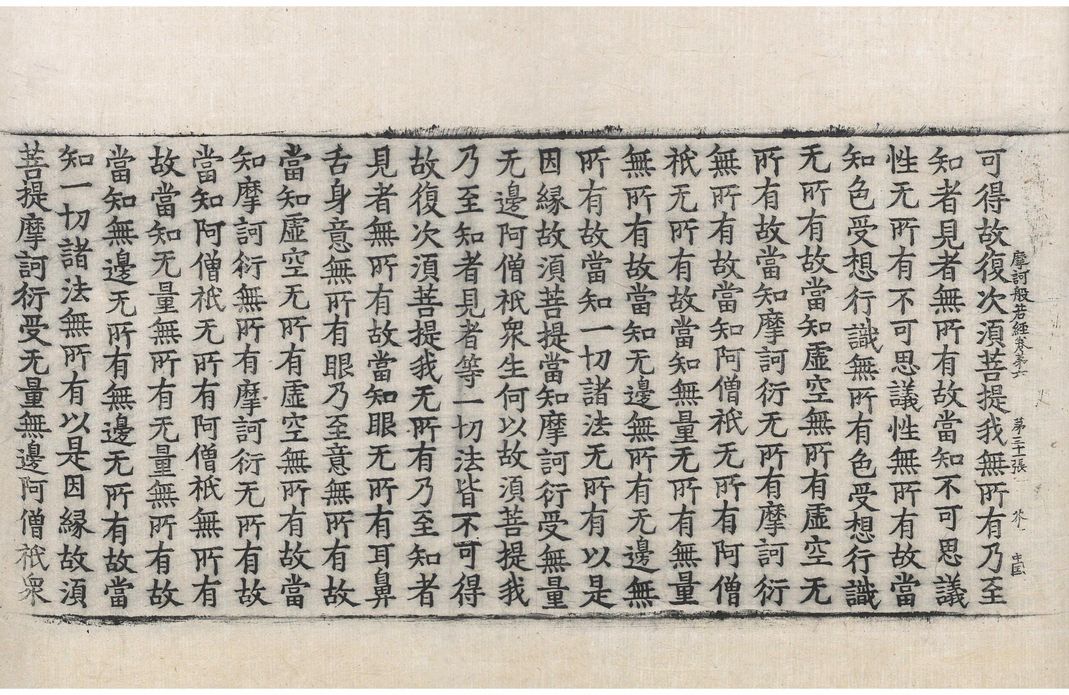 摩訶般若經卷第六
可得故復次須菩提我無所有乃至
知者見者無所有故當知不可思議
性无所有不可思議性無所有故當
知色受想行識無所有色受想行識
无所有故當知虛空無所有虛空无
所有故當知摩訶衍无所有摩訶衍
無所有故當知阿僧祇无所有阿僧
祇无所有故當知無量无所有無量
無所有故當知无邊無所有无邊無
所有故當知一切諸法无所有以是
因緣故須菩提當知摩訶衍受無量
无邊阿僧祇衆生何以故須菩提我
乃至知者見者等一切法皆不可得
故復次須菩提我无所有乃至知者
見者無所有故當知眼无所有耳鼻
舌身意無所有眼乃至意無所有故
當知虛空无所有虛空無所有故當
知摩訶衍無所有摩訶衍无所有故
當知阿僧祇无所有阿僧祇無所有
故當知无量無所有无量無所有故
當知無邊无所有無邊无所有故當
知一切諸法無所有以是因緣故須
菩提摩訶衍受无量無邊阿僧祇衆